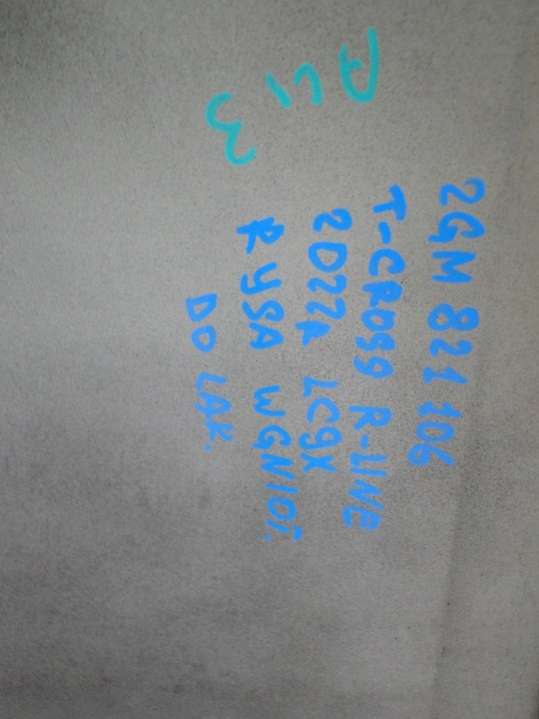 2GM 821 106
T-CROSS R-LINE
2022R LC9X
RYSA WGNIOT.
DO LAK.